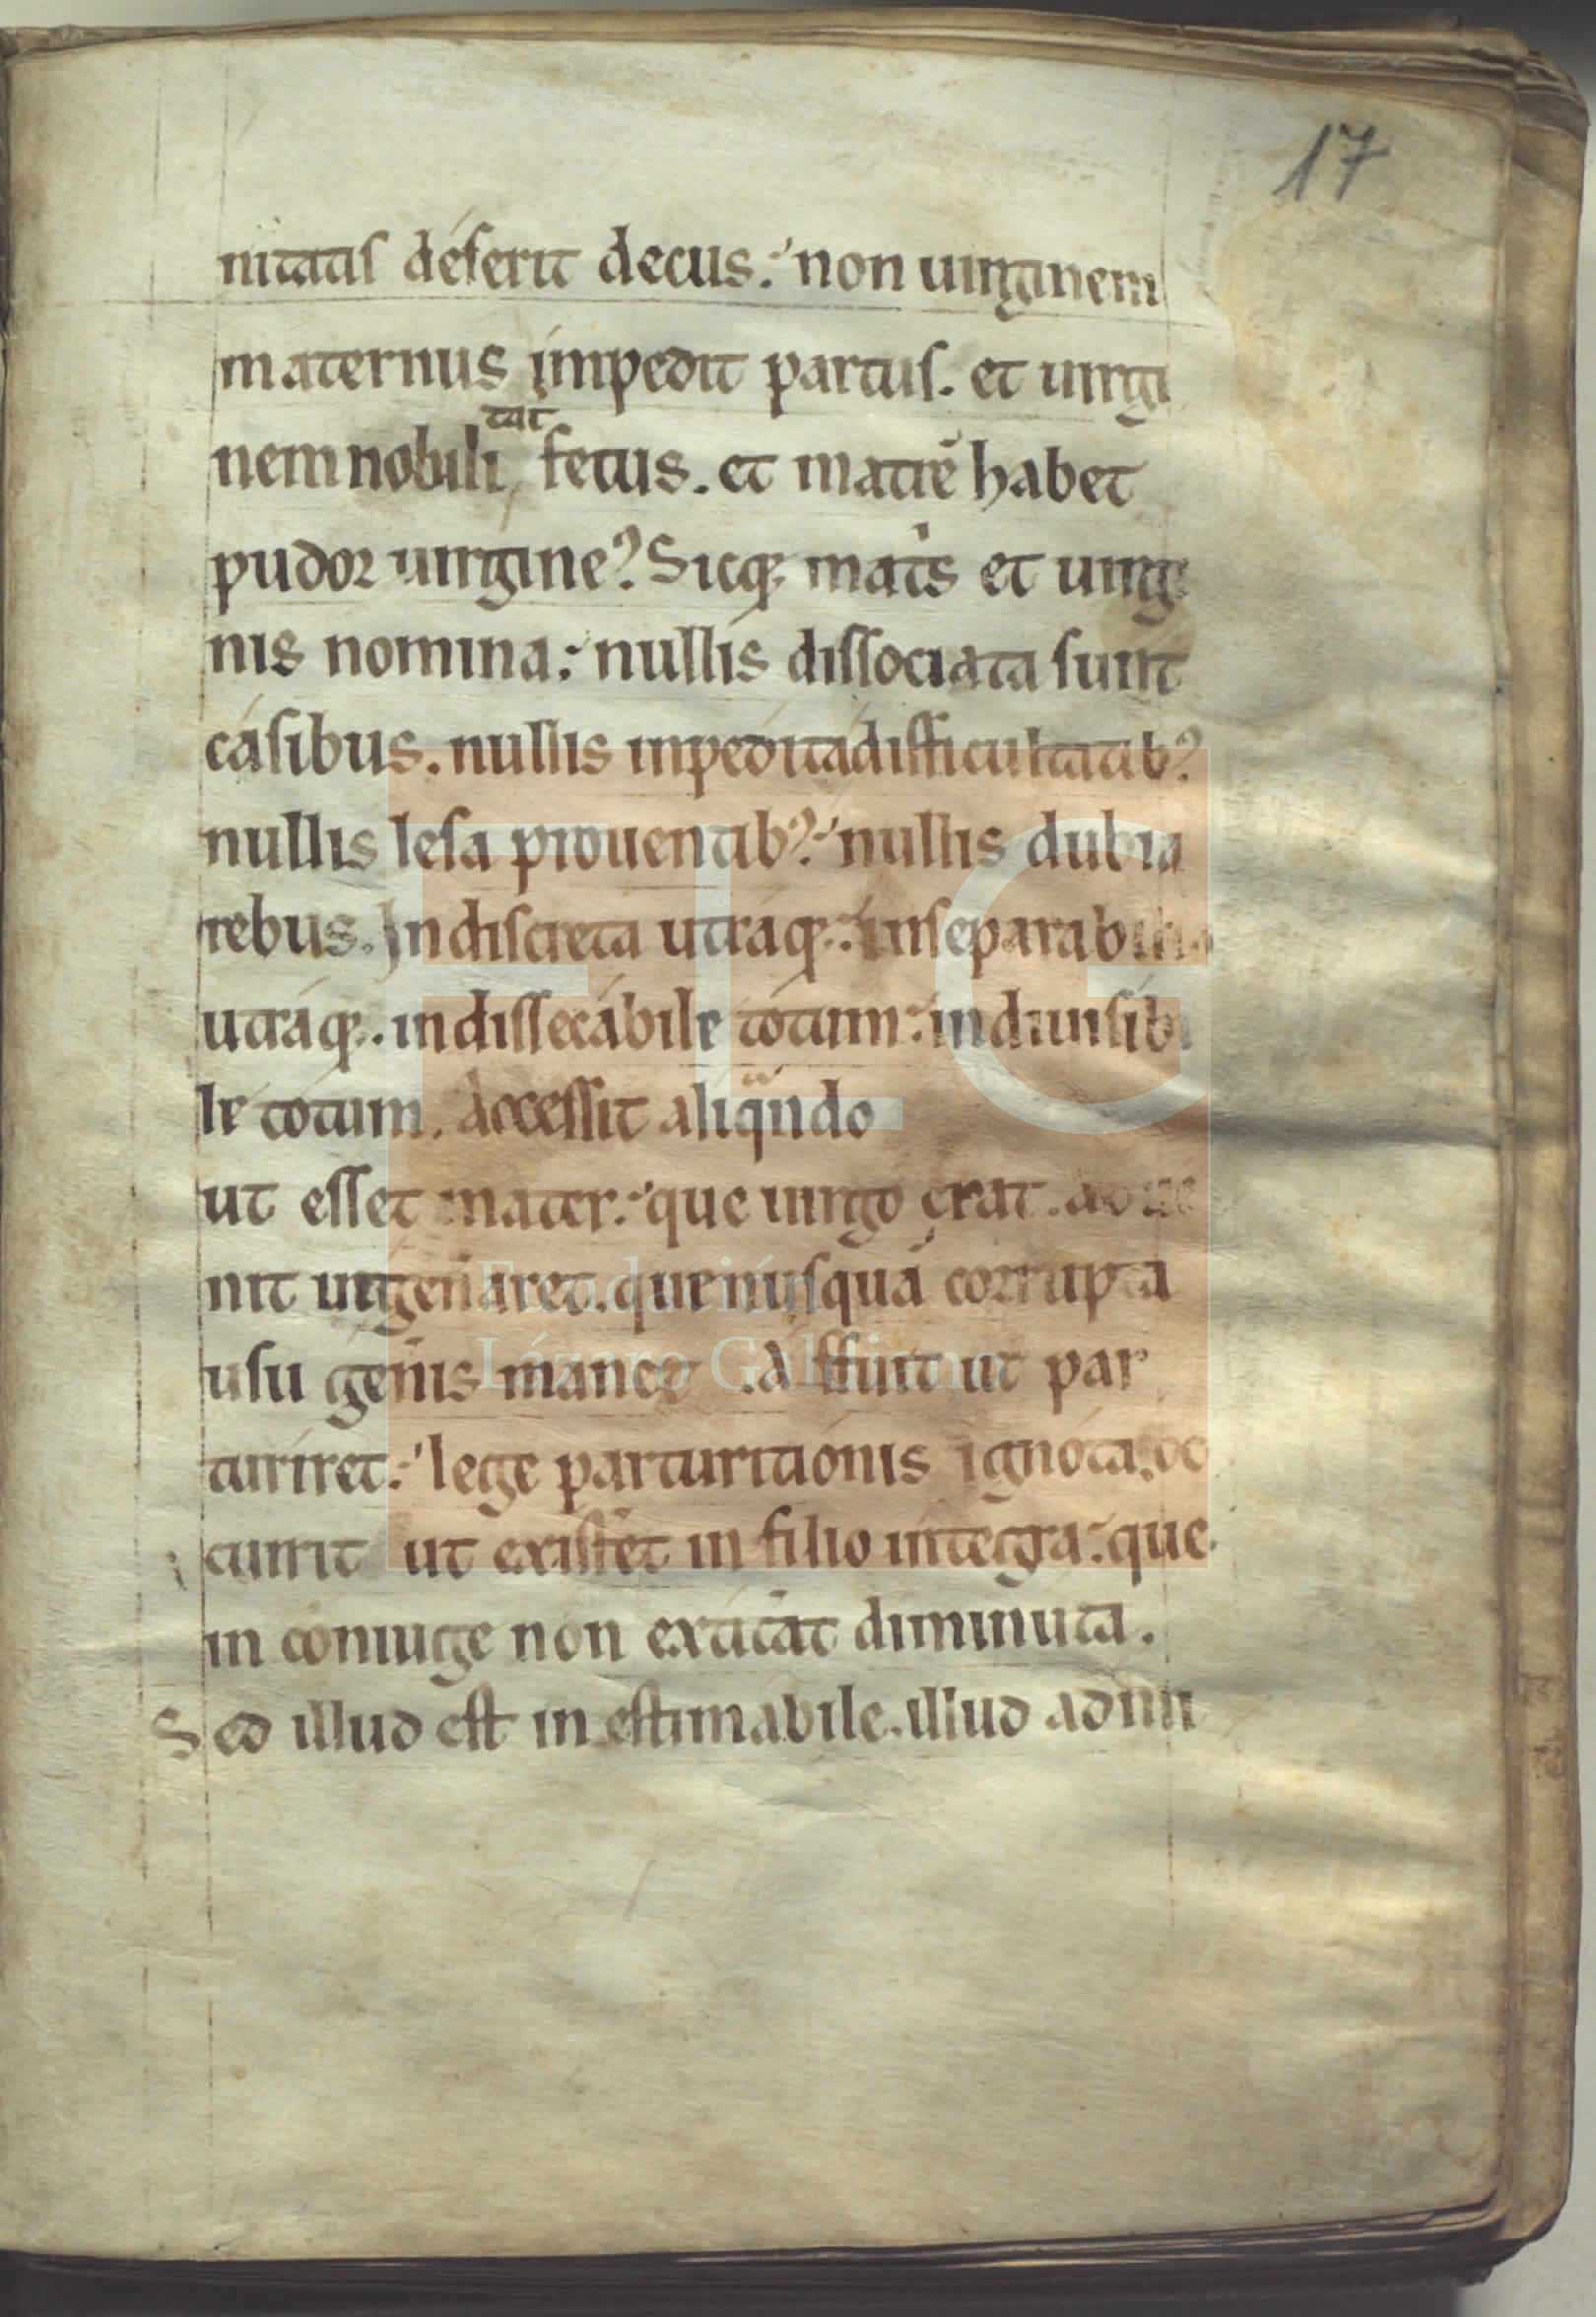 17
nitatis deserit decus. non uirginem
maternus impedit partus. et uirgi
tat
nem nobili fetus. et matrē habet
pudor uirgine? Sicq; mat̄s et uirgi
nis nomina: nullis dissociata sunt
casibus. nullis inpedita difficultatib?
nullis lesa prouentib? nullis dubia
rebus. Indiscreta utraq;. inseparabilia
utraq;. indissecabile totum: indiuisibi
le totum. Accessit aliqndo
ut esset mater: que uirgo erat. adue
nit ut gen̄aret. que nusquā corrupta
usu gen̄is manet. Affuit ut par
turiret: lege parturitionis ignota. oc
currit ut existet in filio integra: que
in coniuge non extitat diminuta.
Sed illud est in estimabile. illud admi
FLG
Fundación
Lázaro Galdiano